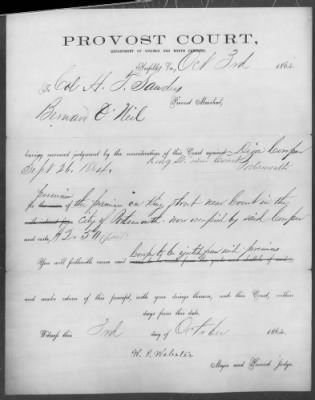 PROVOST COURT,
DEPARTMENT OF VIRGINIA AND NORTH CAROLINA,
Norfolk, Va., Oct 3rd 1864
To Col H. T. Sanders
Provost Marshal,
Bernard O'Neil
having received judgment by the consideration of this Court against
Sept 26, 1864, King St. near Court Portsmouth
for possession of the premises on King Street near Court in the
City of Portsmouth now occupied by said Cooper
and costs, $2.50
You will forthwith cause said Cooper to be ejected from said premises
and make return of this precept, with your doings thereon, unto this Court, within
days from this date.
Witness this 3rd day of October 1864
W. P. Webster
Major and Provost Judge.